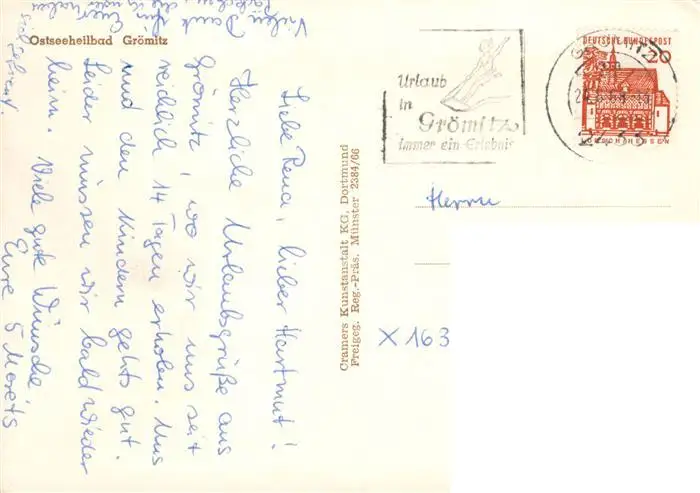 Ostseeheilbad Grömitz
Liebe Rena, lieber Hartmut!
Herzliche Urlaubsgrüße aus
Grömitz, wo wir uns seit
reichlich 14 Tagen erholen. Uns
und den Kindern gehts gut.
Leider müssen wir bald wieder
heim. Viele gute Wünsche,
Eure 5 Morets
Vielen Dank
Cramers Kunstanstalt KG. Dortmund
Freigeg. Reg.-Präs. Münster 2384/66
Urlaub
in
Grömitz
immer ein Erlebnis
DEUTSCHE BUNDESPOST
20
LORSCH/HESSEN
Herrn
X 163